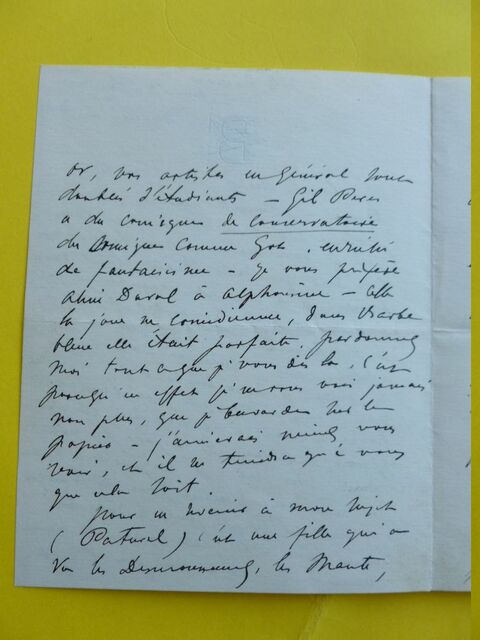 or, vos artistes en général sont
doublés d'étudiants — Gil Peres
a du comique de conservatoire
du comique comme Got. enrichi
de fantaisisme — je vous préfère
Duval à Alphonsine — elle
la joue en comédienne, dans Barbe
bleue elle était parfaite, pardonnez
moi tout ce que j'vous dis là, c'est
en effet j'n'vous vois jamais
non plus, que j'bavarde sur le
papier — j'aimerais mieux vous
voir, et il ne tiendra qu'à vous
que cela soit.
pour en revenir à mon sujet
(Paturel) c'est une fille qui a
vu les, les